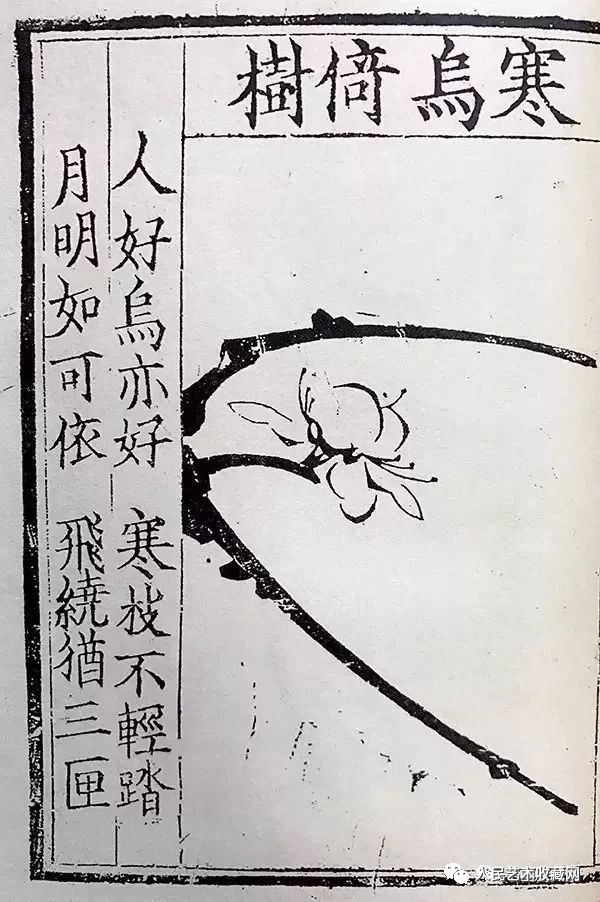 寒烏倚樹
人好烏亦好 寒枝不輕踏
月明如可依 飛繞猶三匝
人民艺术收藏网